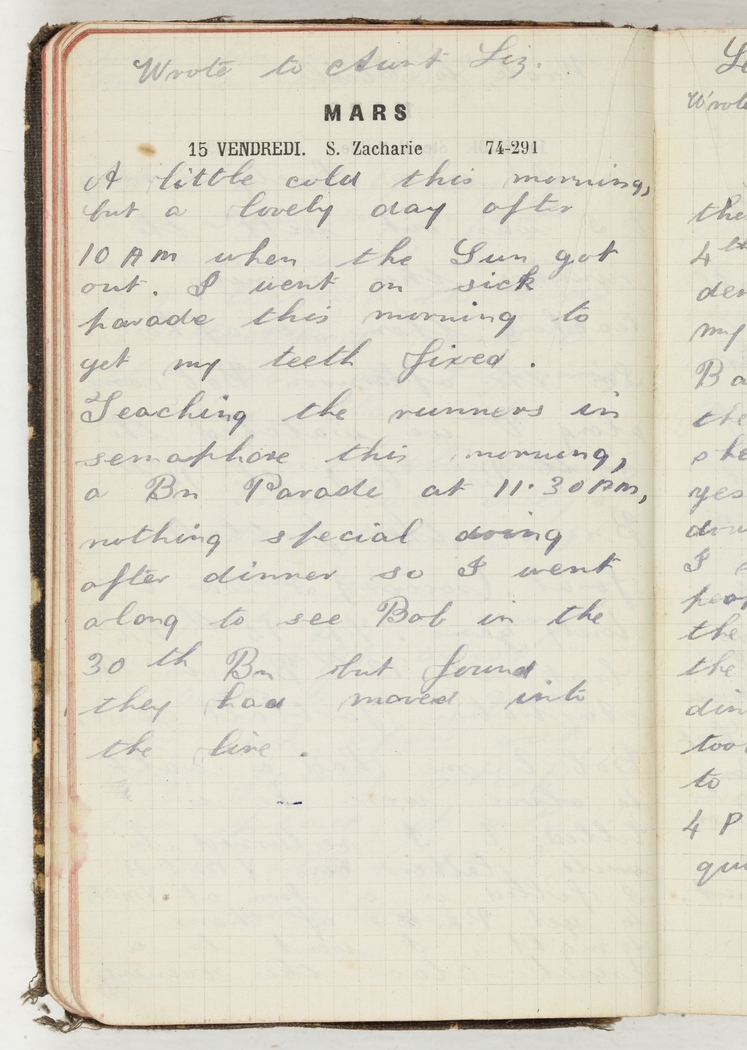 Wrote to Aunt Liz.
MARS
15 VENDREDI. S. Zacharie 74-291
A little cold this morning,
but a lovely day after
10 AM when the Sun got
out. I went on sick
parade this morning to
get my teeth fixed.
Teaching the runners in
semaphore this morning,
a Bn Parade at 11.30 AM,
nothing special doing
after dinner so I went
along to see Bob in the
30th Bn but found
they had moved into
the line.
Wrote
the
4th
der
my
Ba
the
she
yes
dow
I
peop
the
the
din
too
to
4 P
qui